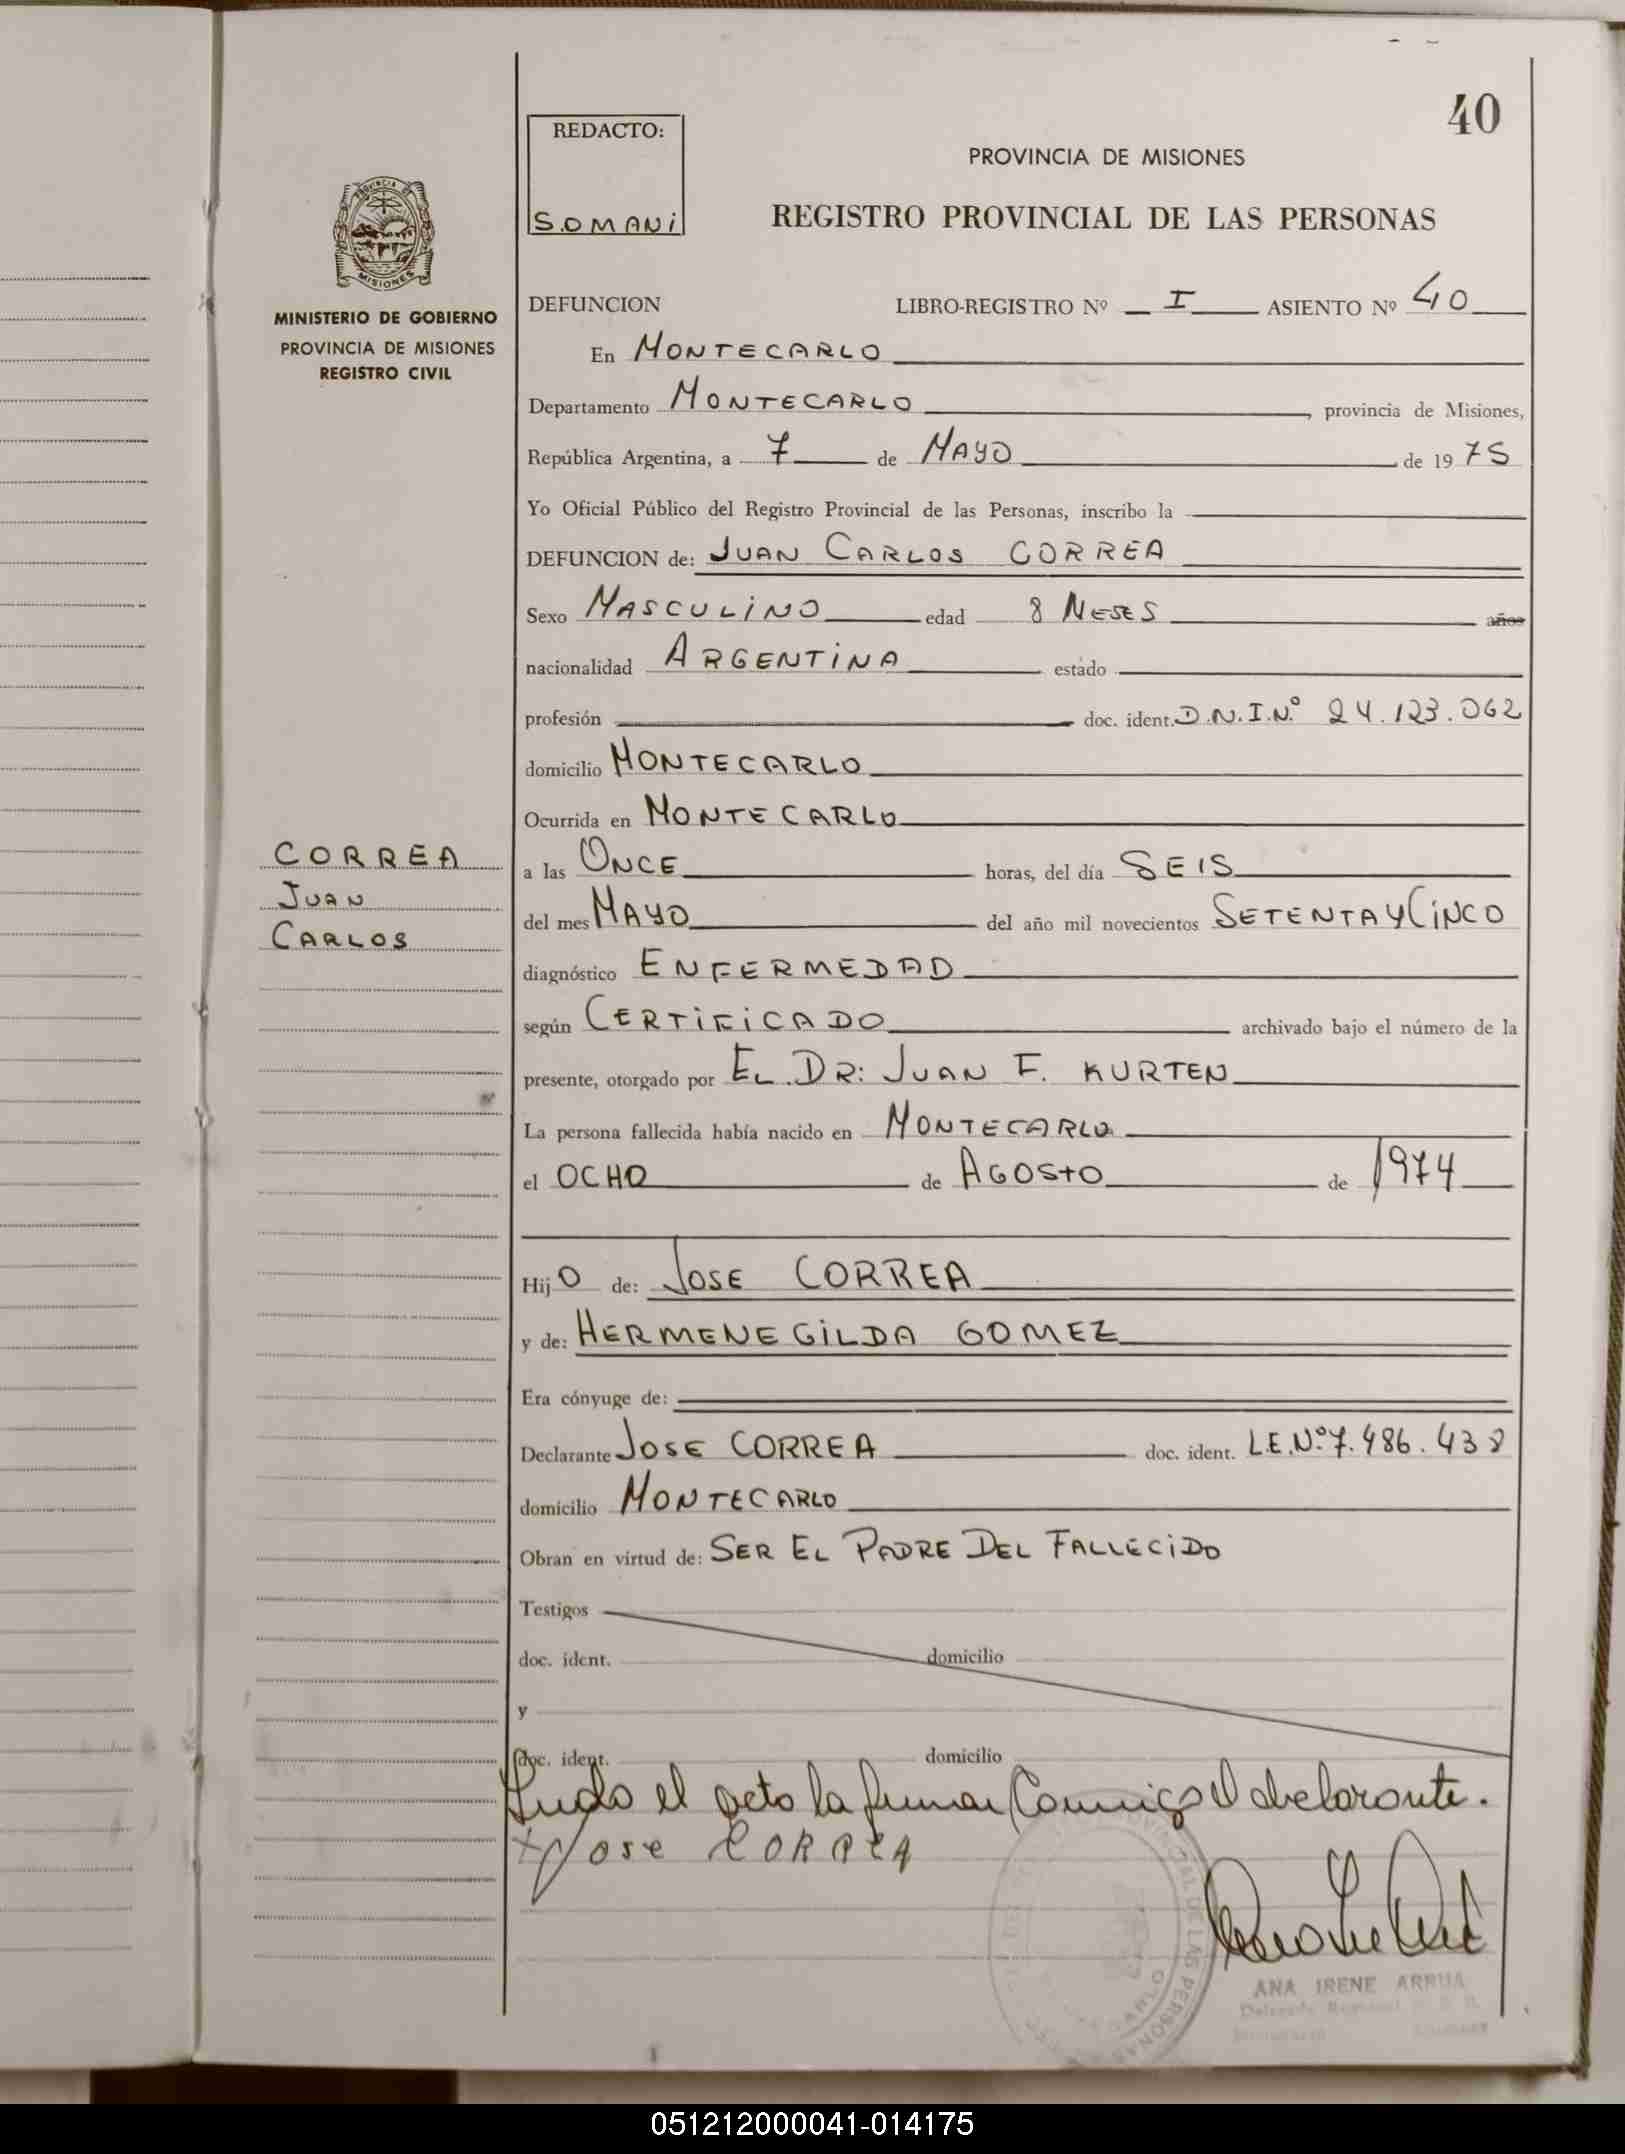 40
REDACTO:
S.OMANi
PROVINCIA DE MISIONES
REGISTRO PROVINCIAL DE LAS PERSONAS
PROVINCIA DE
MISIONES
MINISTERIO DE GOBIERNO
PROVINCIA DE MISIONES
REGISTRO CIVIL
DEFUNCION LIBRO-REGISTRO Nº I ASIENTO Nº 40
En MONTECARLO
Departamento MONTECARLO, provincia de Misiones,
República Argentina, a 7 de MAYO de 1975
Yo Oficial Público del Registro Provincial de las Personas, inscribo la
DEFUNCION de: JUAN CARLOS CORREA
Sexo MASCULiNO edad 8 MESES años
nacionalidad ARGENTiNA estado
profesión doc. ident. D.N.I.Nº 24.123.062
domicilio MONTECARLO
Ocurrida en MONTECARLO
CORREA
JUAN
CARLOS
a las ONCE horas, del día SEIS
del mes MAYO del año mil novecientos SETENTA Y CiNCO
diagnóstico ENFERMEDAD
según CERTiFiCADO archivado bajo el número de la
presente, otorgado por EL DR: JUAN F. KURTEN
La persona fallecida había nacido en MONTECARLO
el OCHO de AGOSTO de 1974
HijO de: JOSE CORREA
y de: HERMENEGiLDA GOMEZ
Era cónyuge de:
Declarante JOSE CORREA doc. ident. L.E.Nº 7.486.438
domicilio MONTECARLO
Obran en virtud de: SER EL PADRE DEL FALLECiDO
Testigos
doc. ident. domicilio
y
doc. ident. domicilio
Leido el acto la firman Conmigo el declarante.
Jose CORREA
PROVINCIAL DE LAS PERSONAS
ANA IRENE ARRUA
051212000041-014175